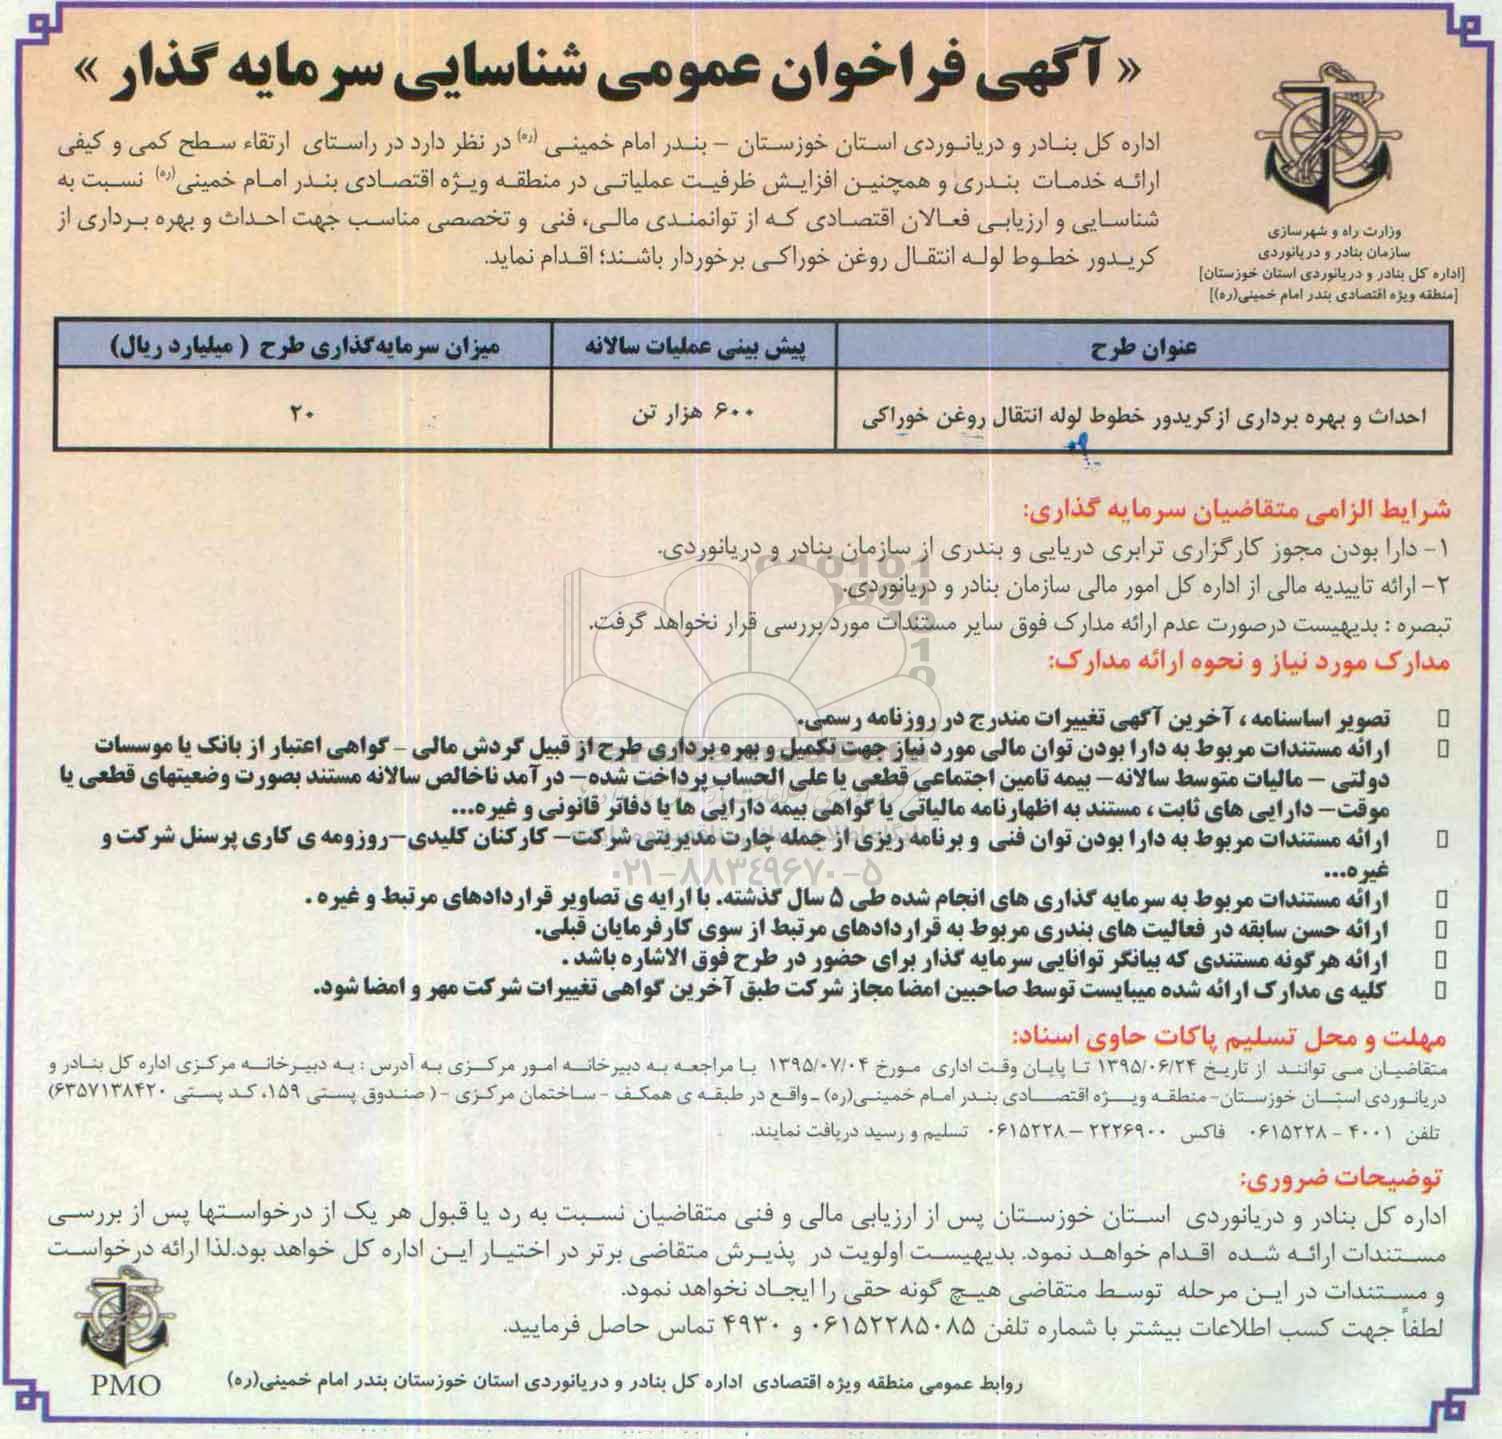 « آگهی فراخوان عمومی شناسایی سرمایه گذار »
وزارت راه و شهرسازی
سازمان بنادر و دریانوردی
[اداره کل بنادر و دریانوردی استان خوزستان]
[منطقه ویژه اقتصادی بندر امام خمینی(ره)]
اداره کل بنادر و دریانوردی استان خوزستان – بندر امام خمینی (ره) در نظر دارد در راستای ارتقاء سطح کمی و کیفی
ارائه خدمات بندری و همچنین افزایش ظرفیت عملیاتی در منطقه ویژه اقتصادی بندر امام خمینی(ره) نسبت به
شناسایی و ارزیابی فعالان اقتصادی که از توانمندی مالی، فنی و تخصصی مناسب جهت احداث و بهره برداری از
کریدور خطوط لوله انتقال روغن خوراکی برخوردار باشند؛ اقدام نماید.
عنوان طرح پیش بینی عملیات سالانه میزان سرمایه‌گذاری طرح ( میلیارد ریال)
احداث و بهره برداری از کریدور خطوط لوله انتقال روغن خوراکی ۶۰۰ هزار تن ۲۰
شرایط الزامی متقاضیان سرمایه گذاری:
۱- دارا بودن مجوز کارگزاری ترابری دریایی و بندری از سازمان بنادر و دریانوردی.
۲- ارائه تاییدیه مالی از اداره کل امور مالی سازمان بنادر و دریانوردی.
تبصره : بدیهیست درصورت عدم ارائه مدارک فوق سایر مستندات مورد بررسی قرار نخواهد گرفت.
مدارک مورد نیاز و نحوه ارائه مدارک:
تصویر اساسنامه ، آخرین آگهی تغییرات مندرج در روزنامه رسمی.
ارائه مستندات مربوط به دارا بودن توان مالی مورد نیاز جهت تکمیل و بهره برداری طرح از قبیل گردش مالی – گواهی اعتبار از بانک یا موسسات
دولتی – مالیات متوسط سالانه– بیمه تامین اجتماعی قطعی یا علی الحساب پرداخت شده– درآمد ناخالص سالانه مستند بصورت وضعیتهای قطعی یا
موقت– دارایی های ثابت ، مستند به اظهارنامه مالیاتی یا گواهی بیمه دارایی ها یا دفاتر قانونی و غیره...
ارائه مستندات مربوط به دارا بودن توان فنی و برنامه ریزی از جمله چارت مدیریتی شرکت– کارکنان کلیدی–روزومه ی کاری پرسنل شرکت و
غیره...
ارائه مستندات مربوط به سرمایه گذاری های انجام شده طی ۵ سال گذشته. با ارایه ی تصاویر قراردادهای مرتبط و غیره .
ارائه حسن سابقه در فعالیت های بندری مربوط به قراردادهای مرتبط از سوی کارفرمایان قبلی.
ارائه هرگونه مستندی که بیانگر توانایی سرمایه گذار برای حضور در طرح فوق الاشاره باشد .
کلیه ی مدارک ارائه شده میبایست توسط صاحبین امضا مجاز شرکت طبق آخرین گواهی تغییرات شرکت مهر و امضا شود.
۰۲۱-۸۸۳۴۹۶۷۰-۵
مهلت و محل تسلیم پاکات حاوی اسناد:
متقاضیان می توانند از تاریخ ۱۳۹۵/۰۶/۲۴ تا پایان وقت اداری مورخ ۱۳۹۵/۰۷/۰۴ با مراجعه به دبیرخانه امور مرکزی به آدرس : به دبیرخانه مرکزی اداره کل بنادر و
دریانوردی استان خوزستان- منطقه ویژه اقتصادی بندر امام خمینی(ره) ـ واقع در طبقه ی همکف - ساختمان مرکزی - ( صندوق پستی ۱۵۹، کد پستی ۶۳۵۷۱۳۸۴۲۰)
تلفن ۴۰۰۱ - ۰۶۱۵۲۲۸ فاکس ۲۲۲۶۹۰۰ – ۰۶۱۵۲۲۸ تسلیم و رسید دریافت نمایند.
توضیحات ضروری:
اداره کل بنادر و دریانوردی استان خوزستان پس از ارزیابی مالی و فنی متقاضیان نسبت به رد یا قبول هر یک از درخواستها پس از بررسی
مستندات ارائه شده اقدام خواهد نمود. بدیهیست اولویت در پذیرش متقاضی برتر در اختیار این اداره کل خواهد بود.لذا ارائه درخواست
و مستندات در این مرحله توسط متقاضی هیچ گونه حقی را ایجاد نخواهد نمود.
لطفاً جهت کسب اطلاعات بیشتر با شماره تلفن ۰۶۱۵۲۲۸۵۰۸۵ و ۴۹۳۰ تماس حاصل فرمایید.
روابط عمومی منطقه ویژه اقتصادی اداره کل بنادر و دریانوردی استان خوزستان بندر امام خمینی(ره)
PMO